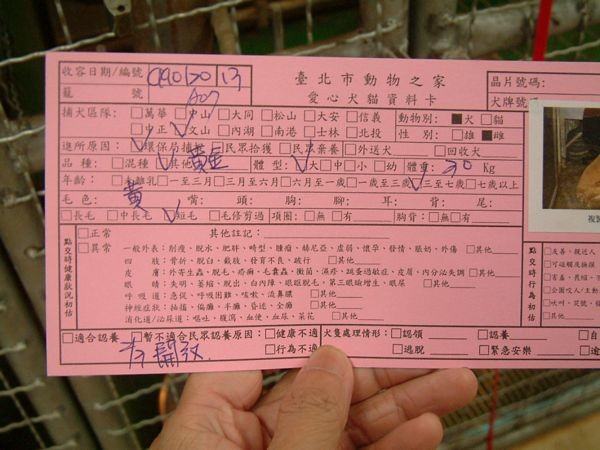 臺北市動物之家
愛心犬貓資料卡
收容日期/編號 090120 13
籠號 A07
晶片號碼:
犬牌號
捕犬區隊: □萬華 □中山 □大同 □松山 □大安 □信義 動物別: ■犬 □貓
□中正 □文山 □內湖 □南港 □士林 □北投 性別: □雄 ■雌
進所原因: □環保局捕 □民眾拾獲 □民眾棄養 □外送犬 □回收犬
品種: □混種 □其他 黃金 體型: □大 □中 □小 □幼 體重: 30 Kg
年齡: □未離乳 □一至三月 □三至六月 □六月至一歲 □一歲至三歲 □三至七歲 □七歲以上
毛色: 黃 嘴: 頭: 胸: 腳: 耳: 背: 尾:
□長毛 □中長毛 □短毛 □毛修剪過 項圈: □無 □有 胸背: □無 □有
點交時健康狀況初估
□正常 其他註記:
□異常 一般外表: 削瘦、脫水、肥胖、畸型、腫瘤、赫尼亞、虛弱、懷孕、發情、脹奶、外傷 □其他
四肢: 骨折、脫臼、截肢、發育不良、跛行 □其他
皮膚: 外寄生蟲、脫毛、疥癬、毛囊蟲、黴菌、濕疹、跳蚤過敏症、皮屑、內分泌失調 □其他
眼睛: 失明、萎縮、脫出、白內障、眼瞼脫毛、第三眼瞼增生、眼屎 □其他
呼吸道: 急促、呼吸困難、咳嗽、流鼻膿 □其他
神經症狀: 抽搐、偏癱、半癱、昏迷、全癱 □其他
消化道/泌尿道: 嘔吐、腹瀉、血便、血尿、茶花 □其他
點交時行為初估
□友善、親近人
□可碰觸及撫摸
□吠叫、
□適合認養 □暫不適合民眾認養原因: □健康不適 犬隻處理情形: □認領 □認養 □自
□行為不適 □逃脫 □緊急安樂